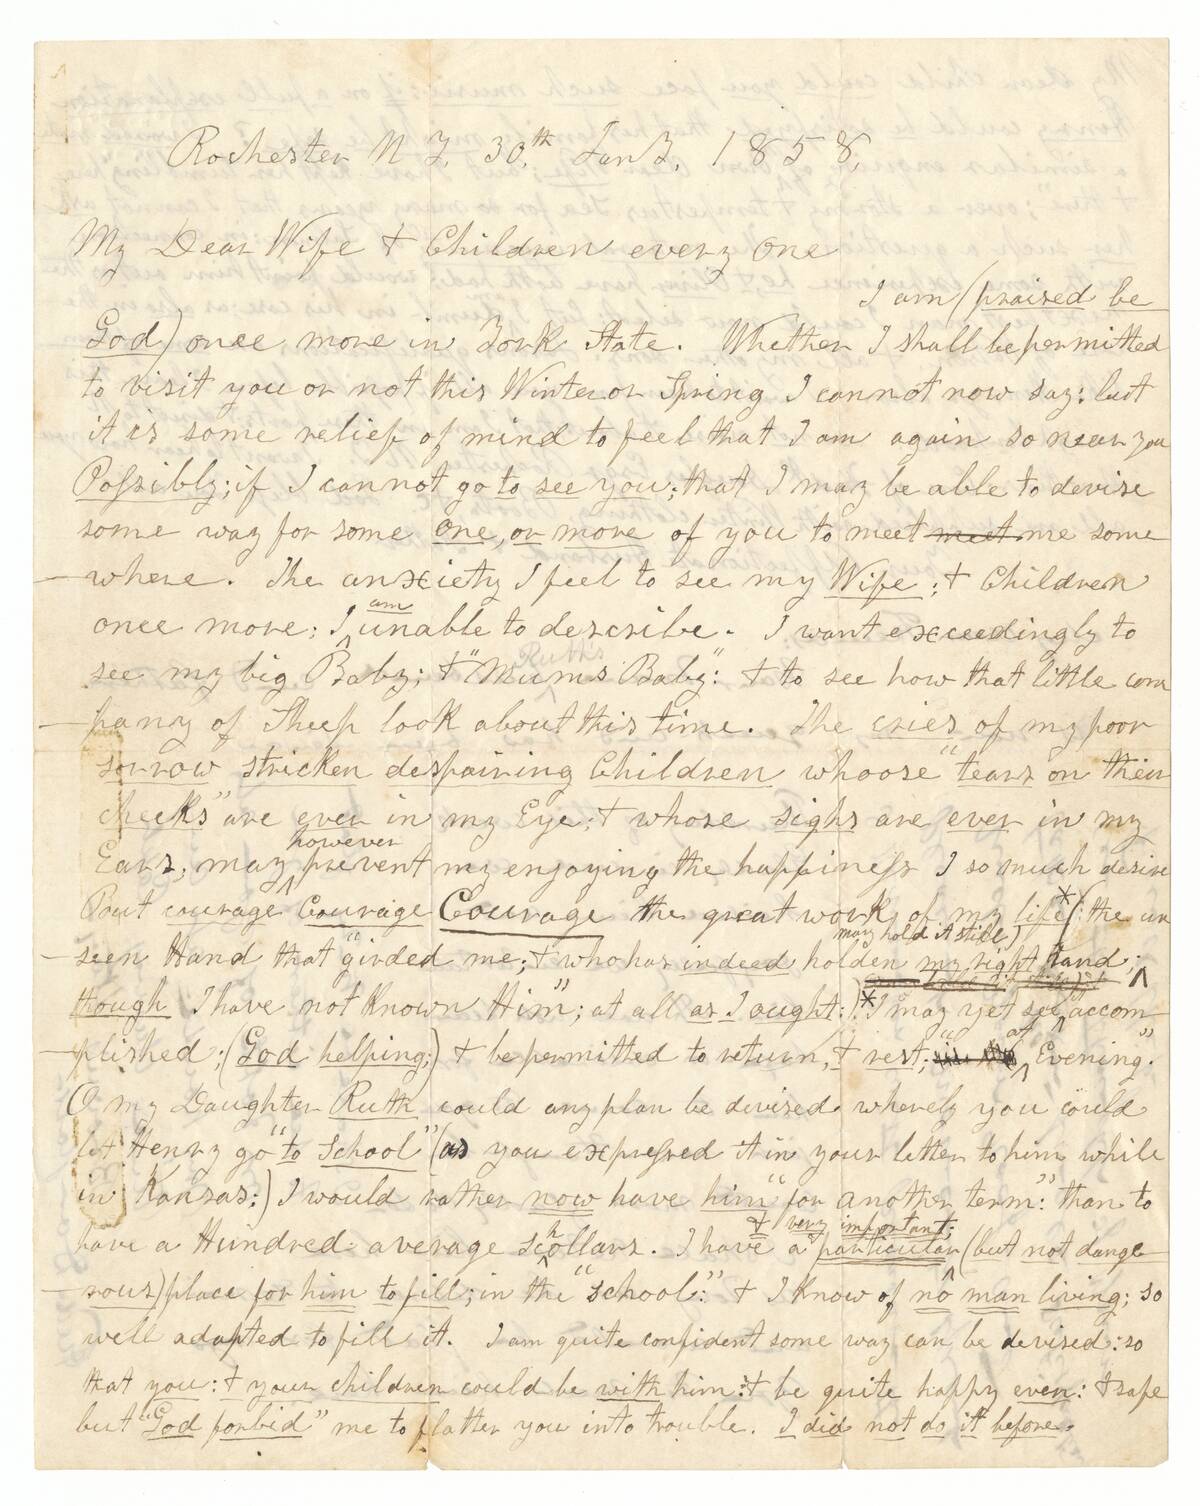 Rochester N Y. 30th Jany. 1858.
My Dear Wife & Children every one
I am (praised be
God) once more in York State. Whether I shall be permitted
to visit you or not this Winter or Spring I cannot now say: but
it is some relief of mind to feel that I am again so near you
Possibly; if I cannot go to see you; that I may be able to devise
some way for some one, or more of you to meet meet me some
where. The anxiety I feel to see my Wife; & Children
once more; I am unable to describe. I want exceedingly to
see my big Baby; & "Ruth's Mum's Baby": & to see how that little com
pany of Sheep look about this time. The cries of my poor
sorrow stricken despairing Children whoose "tears on their
cheeks" are ever in my Eye; & whose sighs are ever in my
Ears; may however prevent my enjoying the happiness I so much desire
But courage Courage Courage the great work of my life * (: the un
seen Hand that "girded me; & who has indeed holden my right hand; may hold it still)
though I have not Known Him"; at all as I ought:) * I may yet see it accom
plished; (God helping;) & be permitted to return, & rest; "at Evening".
O my Daughter Ruth could any plan be devised whereby you could
let Henry go "to School" (as you expressed it in your letter to him while
in Kansas;) I would rather now have him "for another term": than to
have a Hundred average schollars. I have a particular & very important; (but not dange
rous) place for him to fill; in the "school:" & I Know of no man living; so
well adapted to fill it. I am quite confident some way can be devised: so
that you: & your children could be with him: & be quite happy even: & safe
but "God forbid" me to flatter you into trouble. I did not do it before.